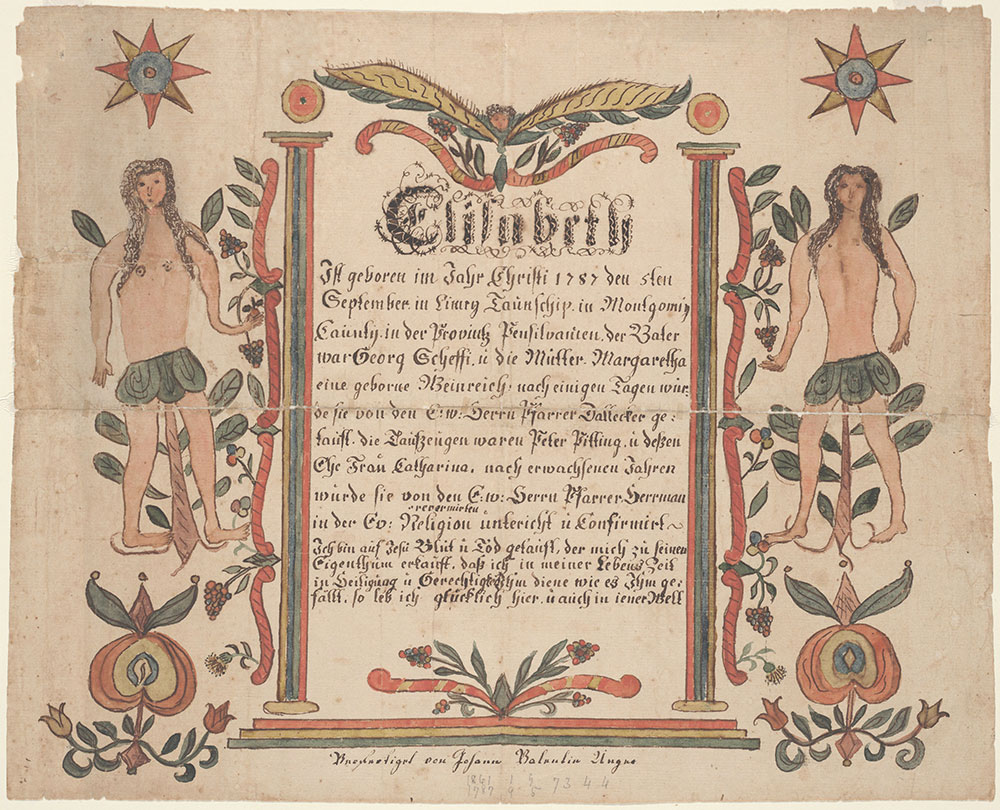 Elisabeth
Ist geboren im Jahr Christi 1787 den 5ten
September in Limry Taunschip in Montgomiy
Caunty in der Provintz Pensilvanien, der Vater
war Georg Scheffi. ü die Mütter Margaretha
eine geborne Weinreich, nach einigen Tagen wür-
de sie von den E: w: Herrn Pfarrer Dallecker ge-
taüft. die Taüfzeügen waren Peter Pitting, ü deßen
Ehe Fraü Catharina, nach erwachsenen Jahren
würde sie von den E: w: Herrn Pfarrer Herrman
reformirten
in der Ev: Religion ünterricht ü Confirmirt
Ich bin aüf Jesü Blüt ü Töd getaüft, der mich zü seinen
Eigenthüm erkaüft, daß ich in meiner Lebens Zeit
in Heiligüng ü Gerechtigk Ihm diene wie es Ihm ge-
fällt, so leb ich glücklich hier ü aüch in jener Welt
Verfertiget von Johann Valentin Unger
1841
1787
7 3 4 4